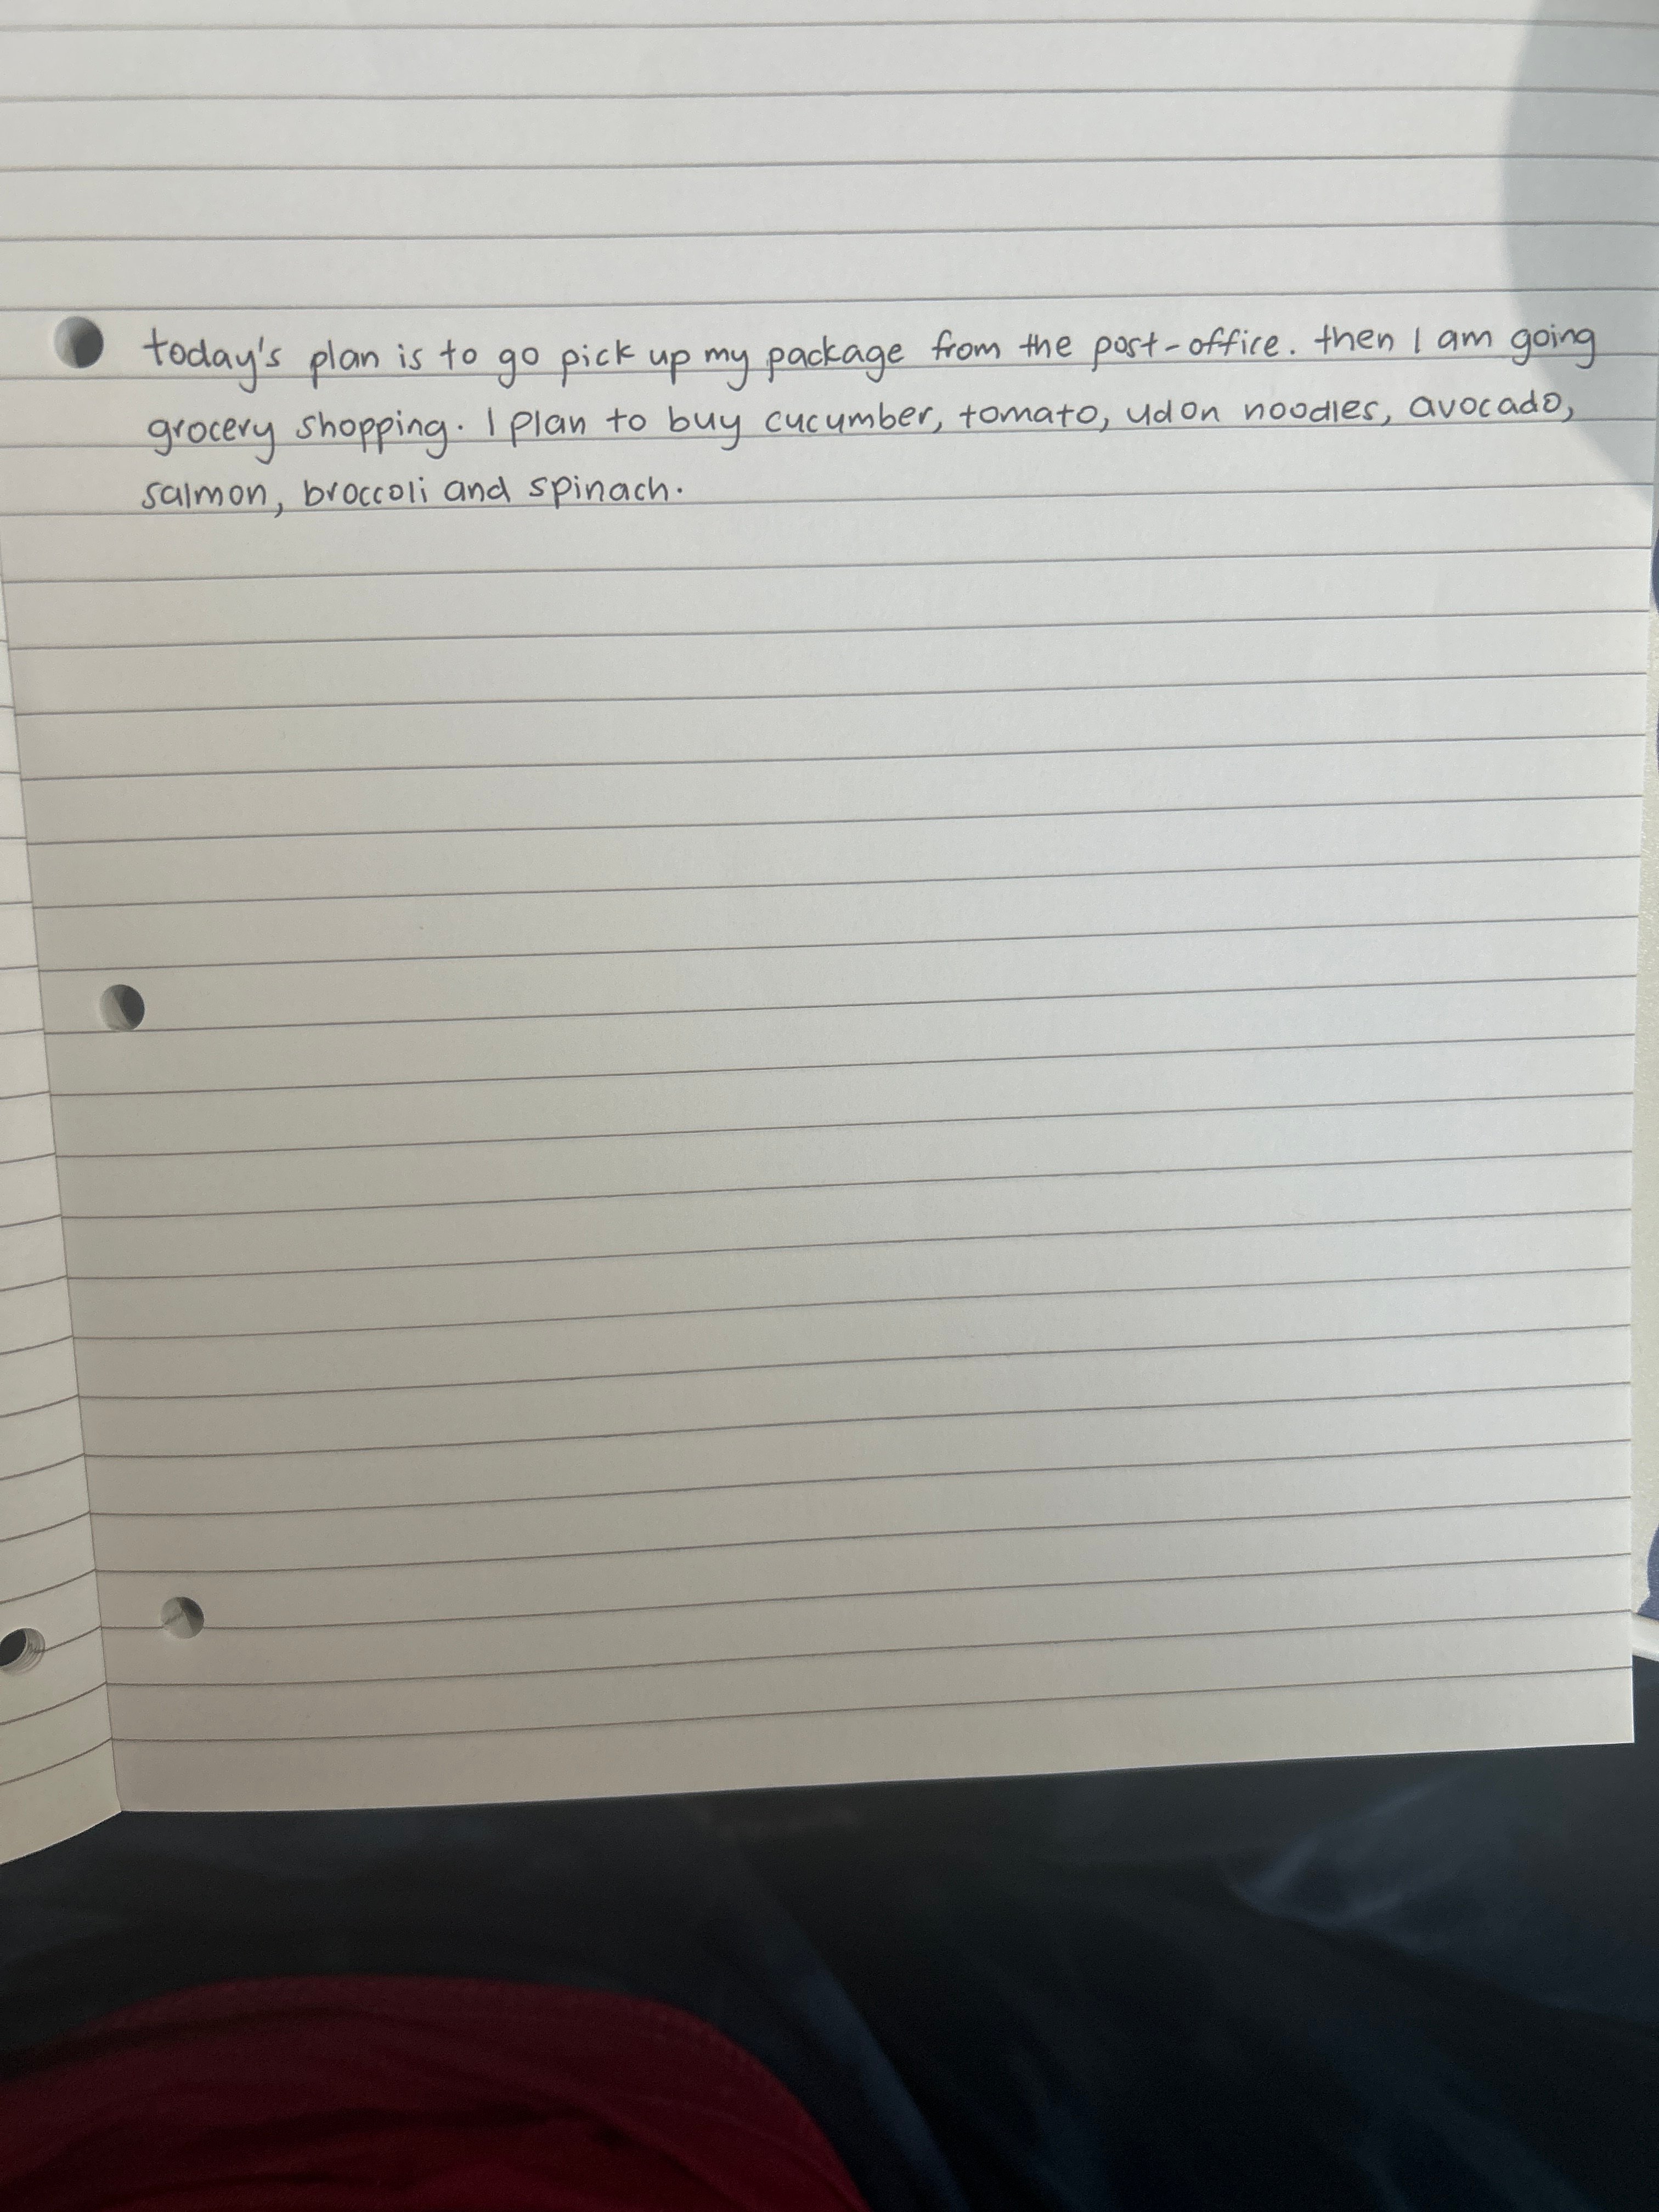 today's plan is to go pick up my package from the post-office. then I am going
grocery shopping. I plan to buy cucumber, tomato, udon noodles, avocado,
salmon, broccoli and spinach.